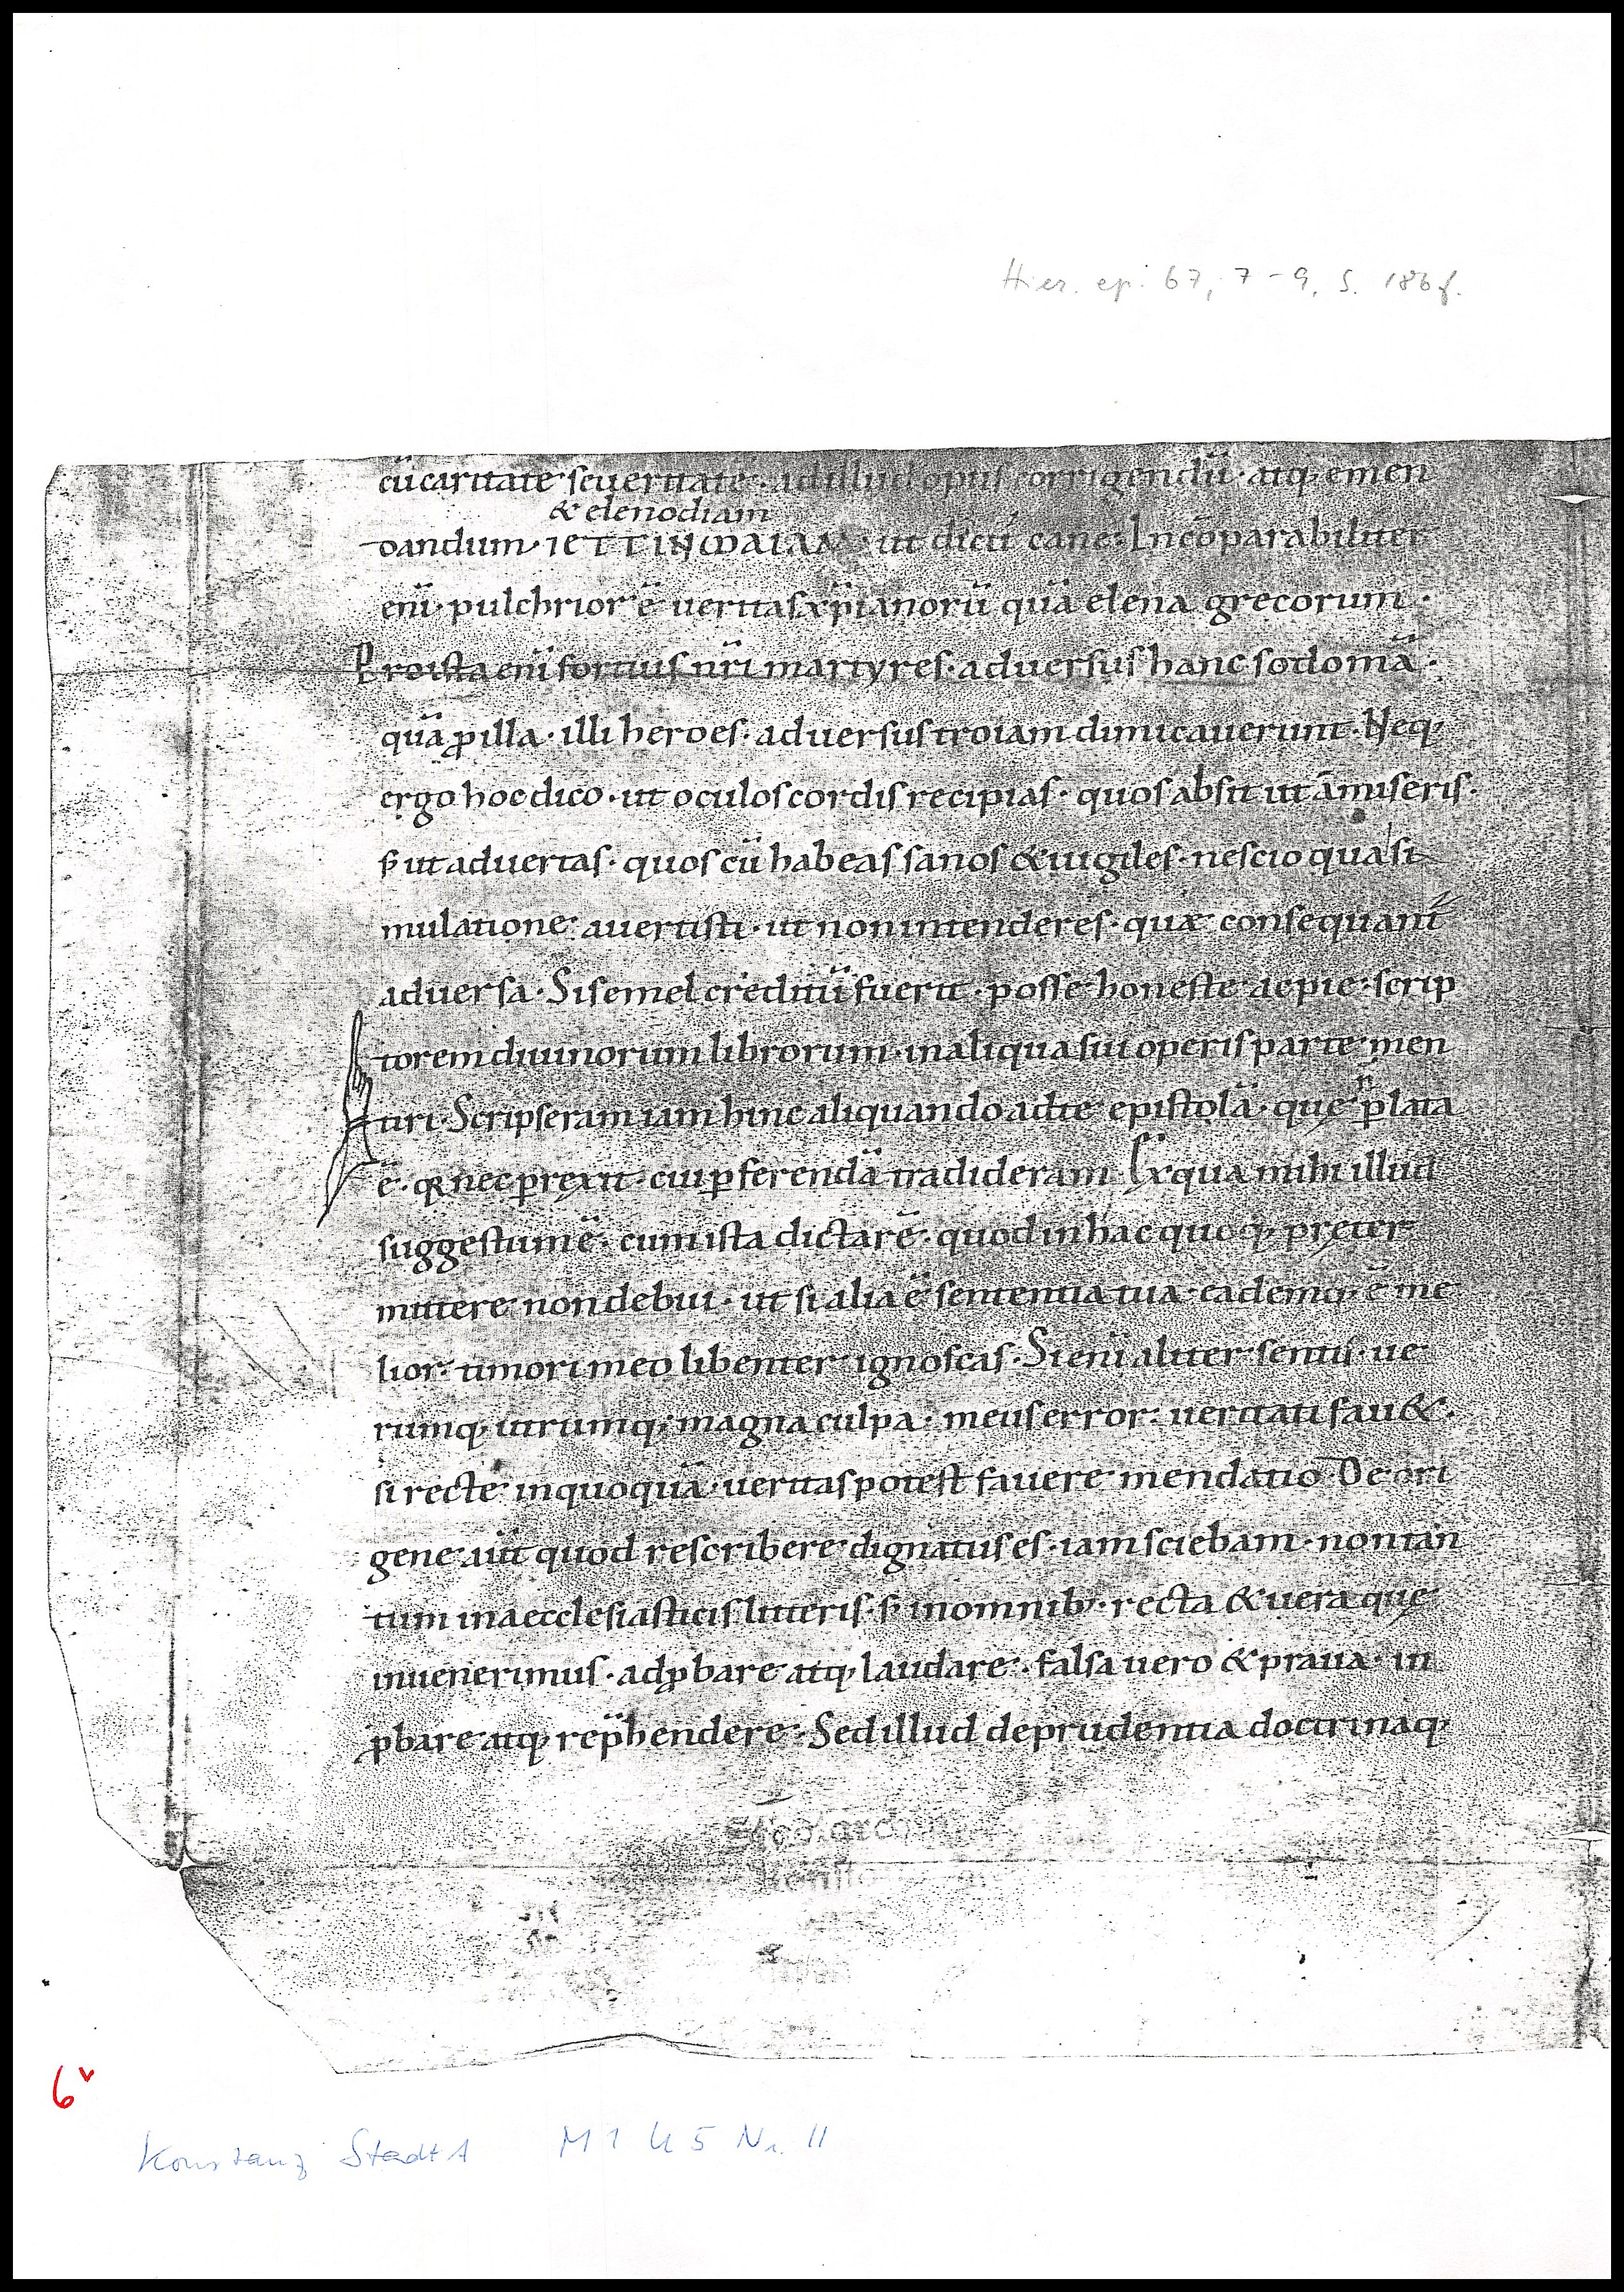 Hier. ep. 67, 7-9, S. 186f.
cū caritate seueritate · ad illud opus corrigendū · atq; emen
& elenodiam
dandum · ut dict̄ cane · Incōparabiliter
enī · pulchrior ē ueritas xp̄ianorū quā elena grecorum ·
Pro ista enī fortius nr̄i martyres · aduersus hanc sodomā ·
quā ꝓ illa · illi heroes · aduersus troiam dimicauerunt · Neq;
ergo hoc dico · ut oculos cordis recipias · quos absit ut āmiseris ·
s; ut aduertas · quos cū habeas sanos & uigiles · nescio qua si
mulatione auertisti · ut non intenderes · quæ consequant̄
aduersa · Si semel creditū fuerit · posse honeste ac pie · scrip
torem diuinorum librorum · in aliqua sui operis parte men
tiri · Scripseram iam hinc aliquando ad te epistolā · quę n̄ ꝑlata
ē · q̄ nec ꝑrexit · cui ꝑferendā tradideram · Ex qua mihi illud
suggestum ē · cum ista dictarē · quod in hac quoq; pręter
mittere non debui · ut si alia ē sententia tua · eademq; ē me
lior · timori meo libenter ignoscas · Si enī aliter sentis · ue
rumq; utrumq; magna culpa · meus error · ueritati fau& ·
si recte in quoquā · ueritas potest fauere mendatio · De ori
gene aūt quod rescribere dignatus es · iam sciebam · non tan
tum in aecclesiasticis litteris · s; in omnib; · recta & uera quę
inuenerimus · adꝓbare atq; laudare · falsa uero & praua · in
ꝓbare atq; rep̄hendere · Sed illud de prudentia doctrinaq;
6v
Konstanz StadtA M 1 U 5 Nr. 11